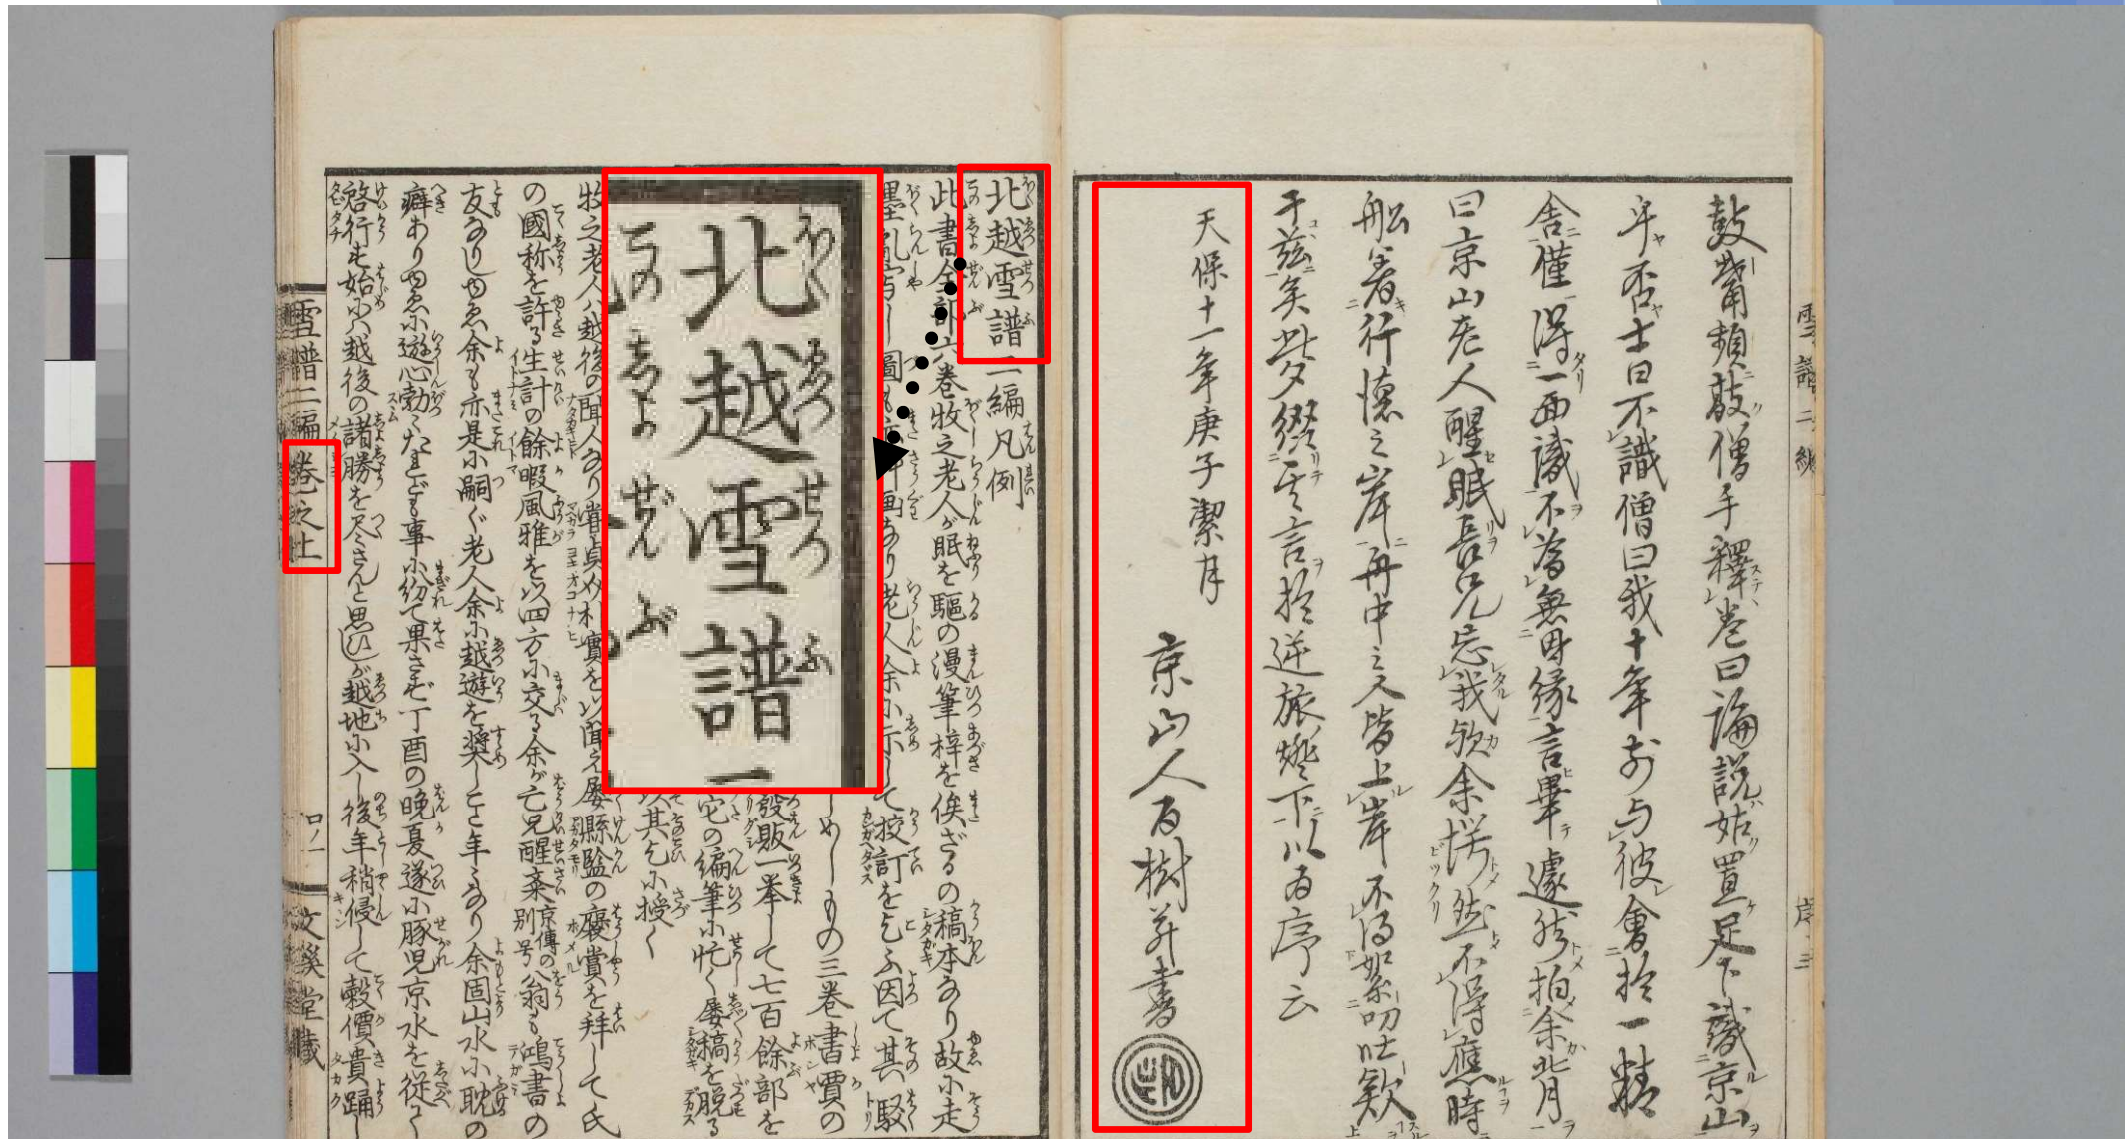 雪譜二編
序三
鼓觜頻敲僧手釋巻曰論説姑置足下識京山
乎否士曰不識僧曰我十年前与彼會於一精
舎僅得一面識不為無因縁言畢遽然拍余背
曰京山老人醒眠長兄忘我欤余愕然不得應時
船着行徳之岸舟中之人皆上岸不得如茶叨吐歎
于茲矣此夕綴其言於逆旅燈下以為序云
天保十一年庚子潔月
京山人百樹并書
北越雪譜二編凡例
此書全部六巻牧之老人が眠を驅の漫筆梓を俟ざるの稿本なり故に走
墨乱写し圖も
画なり老人余に示して挍訂を乞ふ因て其駁
めしもの三巻書賈の
發販一挙して七百餘部を
它の編筆に忙く屡稿を脱る
以其乞に授く
牧之老人ハ越後の聞人なり嘗貞介朴實を以聞え屡縣監の褒賞を拜して氏
の國称を許る生計の餘暇風雅を以四方に交る余が亡兄醒斎京傳の別号翁も鴻書の
友なりしゆゑ余も亦是に嗣ぐ老人余に越遊を奨しこと年ゝなり余固山水に耽の
癖ありゆゑに遊心勃ゝたれども事に紛て果さず丁酉の晩夏遂に豚児京水を従て
啓行す始には越後の諸勝を尽さんと思ひしが越地に入し後年稍侵して穀價貴踊し
北越雪譜
雪譜二編巻之上
口ノ一
文溪堂蔵